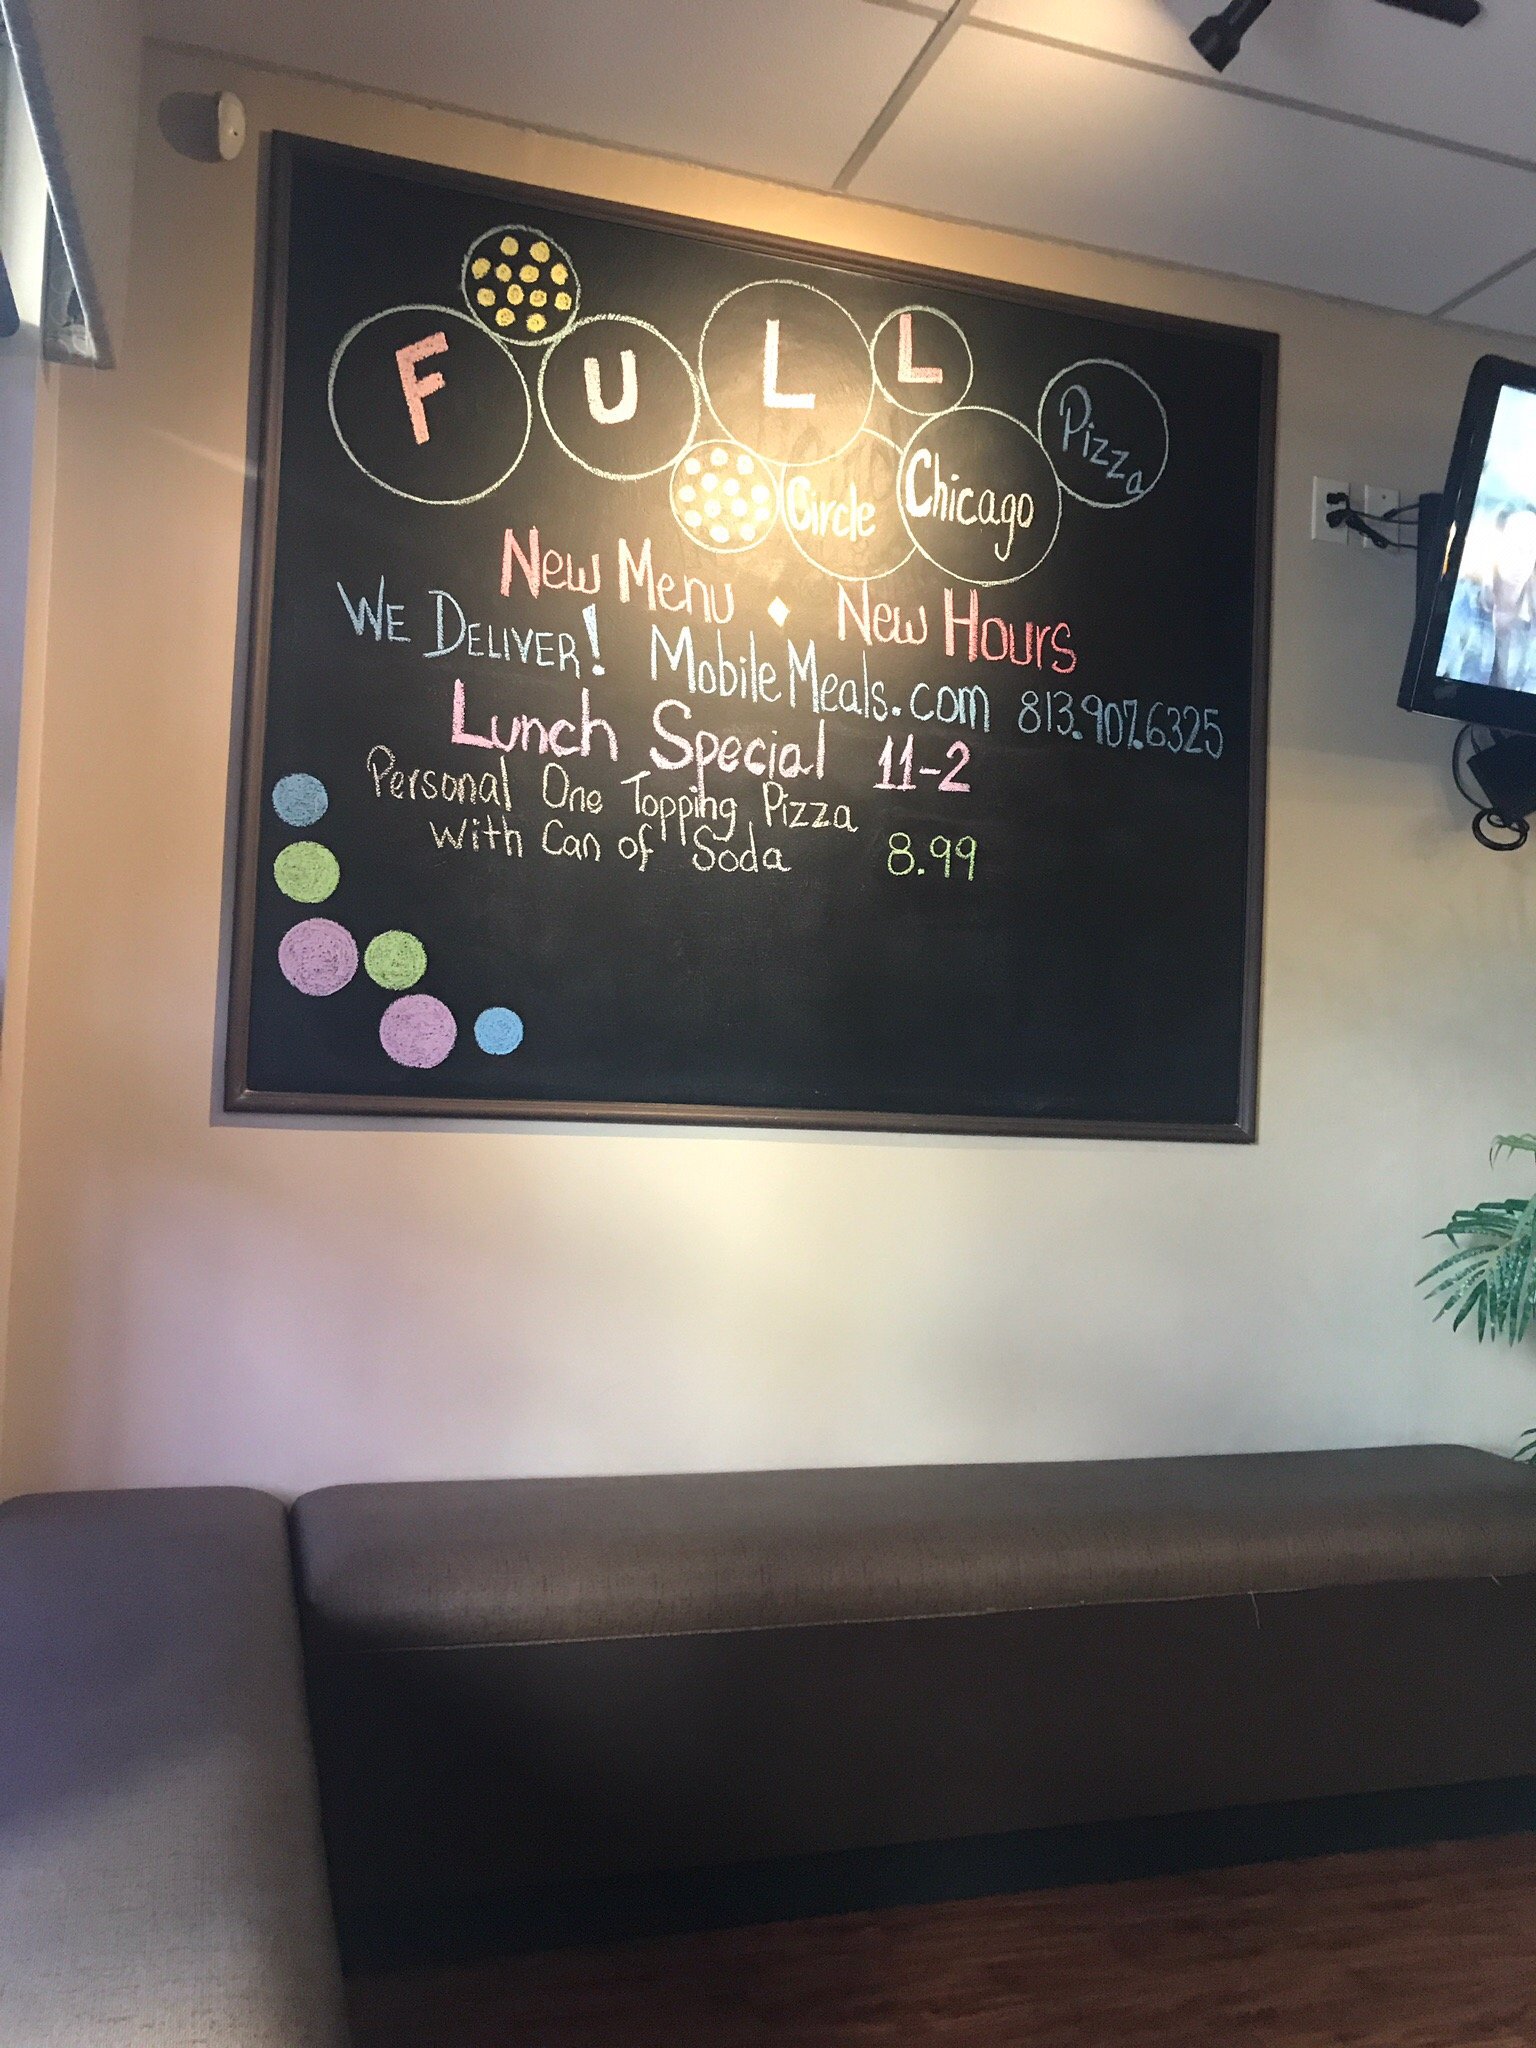 FULL
Circle Chicago Pizza
New Menu ♦ New Hours
WE DELIVER! MobileMeals.com 813.907.6325
Lunch Special 11-2
Personal One Topping Pizza
With Can of Soda 8.99